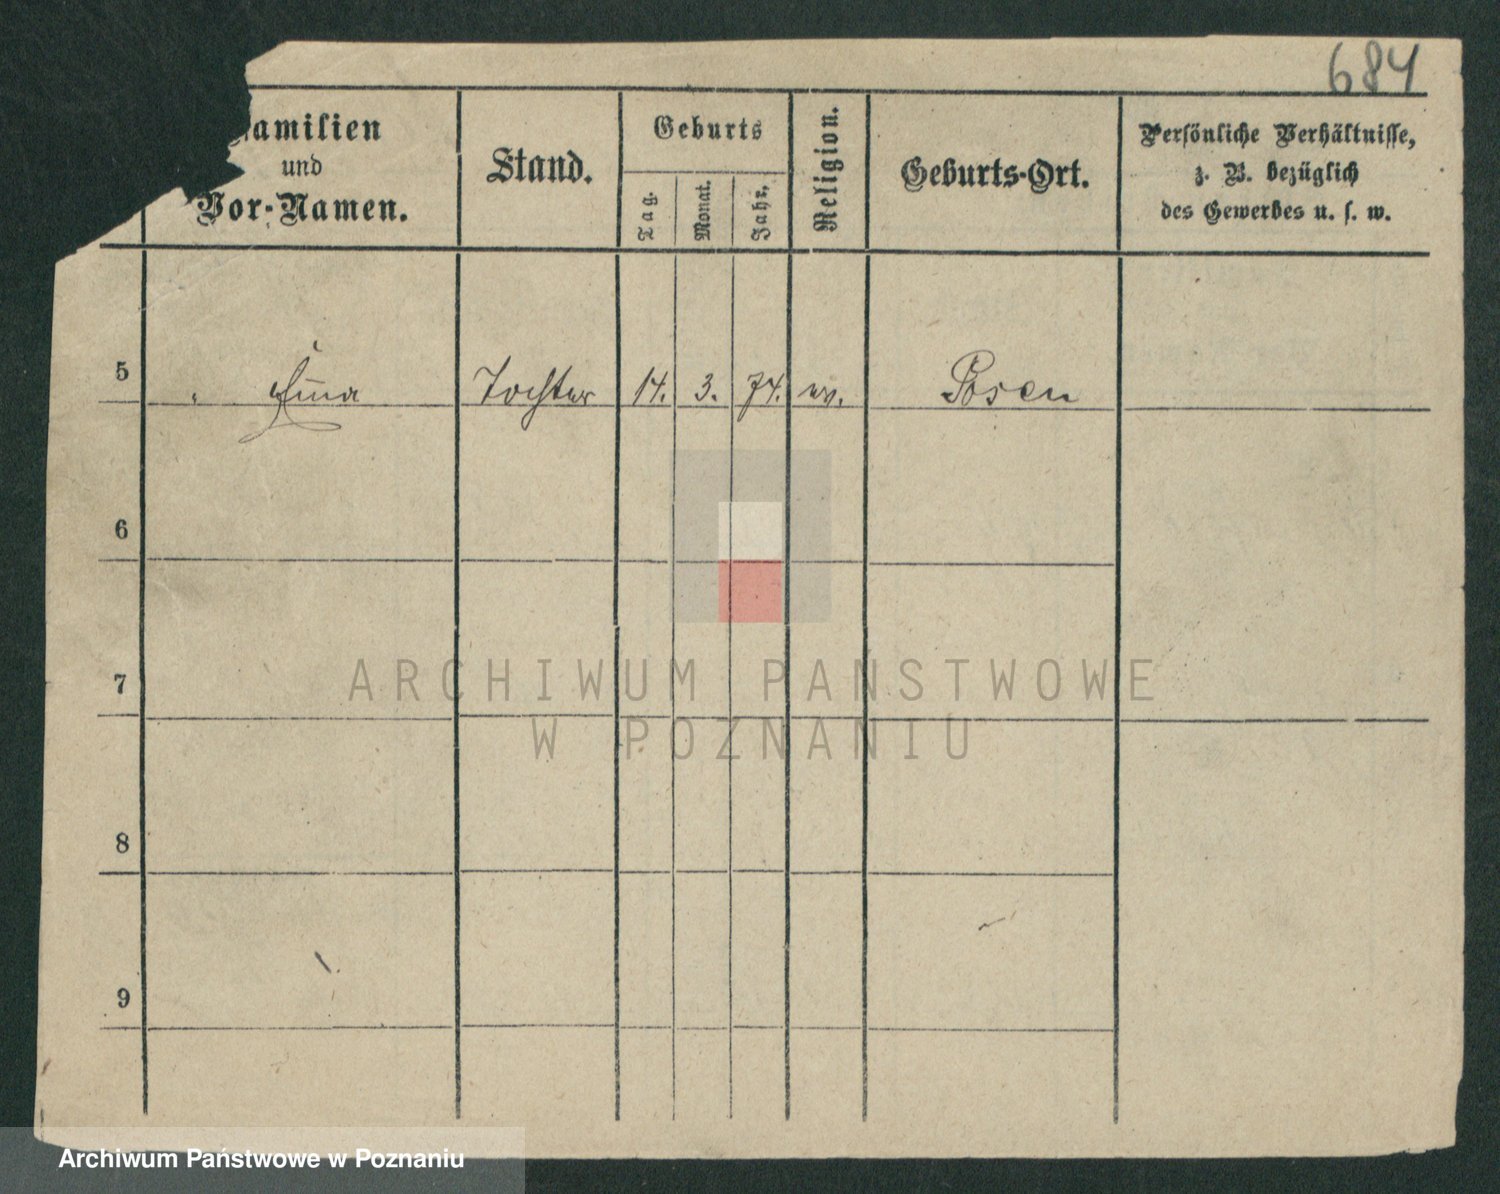 684
Familien
und
Vor-Namen.
Stand.
Geburts
Tag.
Monat.
Jahr.
Religion.
Geburts-Ort.
Persönliche Verhältnisse,
z. B. bezüglich
des Gewerbes u. s. w.
5 " Tochter 14. 3. 74. ev. Posen
6
7
8
9
ARCHIWUM PAŃSTWOWE
W POZNANIU
Archiwum Państwowe w Poznaniu